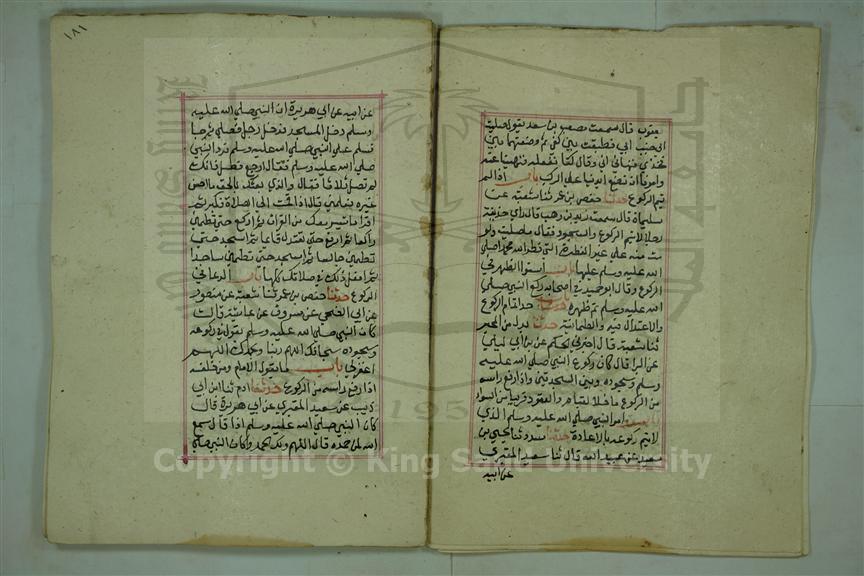 يعفور قال سمعت مصعب بن سعد يقول صليت
الى جنب ابي فطبقت بين كفي ثم وضعتهما بين
فخذي فنهاني ابي وقال كنا نفعله فنهينا عنه
وامرنا ان نضع ايدينا على الركب باب اذا لم
يتم الركوع حدثنا حفص بن عمر ثنا شعبة عن
سليمان قال سمعت زيد بن وهب قال راى حذيفة
رجلا لا يتم الركوع والسجود فقال ما صليت ولو
مت مت على غير الفطرة التي فطر الله محمدا صلى
الله عليه وسلم عليها باب استواء الظهر في
الركوع وقال ابو حميد في اصحابه ركع النبي صلى
الله عليه وسلم ثم هصر ظهره باب حد اتمام الركوع
والاعتدال فيه والطمانينة حدثنا بدل من المحبر
ثنا شعبة قال اخبرني الحكم عن ابن ابي ليلى
عن البرا قال كان ركوع النبي صلى الله عليه
وسلم وسجوده وبين السجدتين واذا رفع راسه
من الركوع ما خلا القيام والقعود قريبا من السواء
باب امر النبي صلى الله عليه وسلم الذي
لا يتم ركوعه بالاعادة حدثنا مسدد ثنا يحيى بن
سعيد عن عبيد الله قال ثنا سعيد المقبري
عن ابيه
١٨١
عن ابيه عن ابي هريرة ان النبي صلى الله عليه
وسلم دخل المسجد فدخل رجل فصلى ثم جا
فسلم على النبي صلى الله عليه وسلم فرد النبي
صلى الله عليه وسلم فقال ارجع فصل فانك
لم تصل ثلاثا فقال والذي بعثك بالحق ما احسن
غيره فعلمني قال اذا قمت الى الصلاة فكبر ثم
اقرا ما تيسر معك من القران ثم اركع حتى تطمئن
راكعا ثم ارفع حتى تعتدل قائما ثم اسجد حتى
تطمئن جالسا ثم اسجد حتى تطمئن ساجدا
ثم افعل ذلك في صلاتك كلها باب الدعا في
الركوع حدثنا حفص بن عمر ثنا شعبة عن منصور
عن ابي الضحى عن مسروق عن عائشة قالت
كان النبي صلى الله عليه وسلم يقول في ركوعه
وسجوده سبحانك اللهم ربنا وبحمدك اللهم
اغفر لي باب ما يقول الامام ومن خلفه
اذا رفع راسه من الركوع حدثنا ادم ثنا ابن ابي
ذيب عن سعيد المقبري عن ابي هريرة قال
كان النبي صلى الله عليه وسلم اذا قال سمع
الله لمن حمده قال اللهم ولك الحمد وكان النبي صلى
Copyright © King Saud University
195